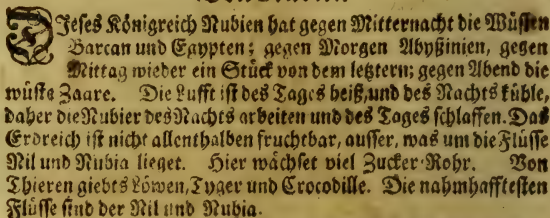 DJeses Königreich Nubien hat gegen Mitternacht die Wüsten
Barcan und Egypten; gegen Morgen Abyßinien, gegen
Mittag wieder ein Stück von dem letztern; gegen Abend die
wüste Zaare. Die Lufft ist des Tages heiß, und des Nachts kühle,
daher die Nubier des Nachts arbeiten und des Tages schlaffen. Das
Erdreich ist nicht allenthalben fruchtbar, ausser, was um die Flüsse
Nil und Nubia lieget. Hier wächset viel Zucker-Rohr. Von
Thieren giebts Löwen, Tyger und Crocodille. Die nahmhafftesten
Flüsse sind der Nil und Nubia.